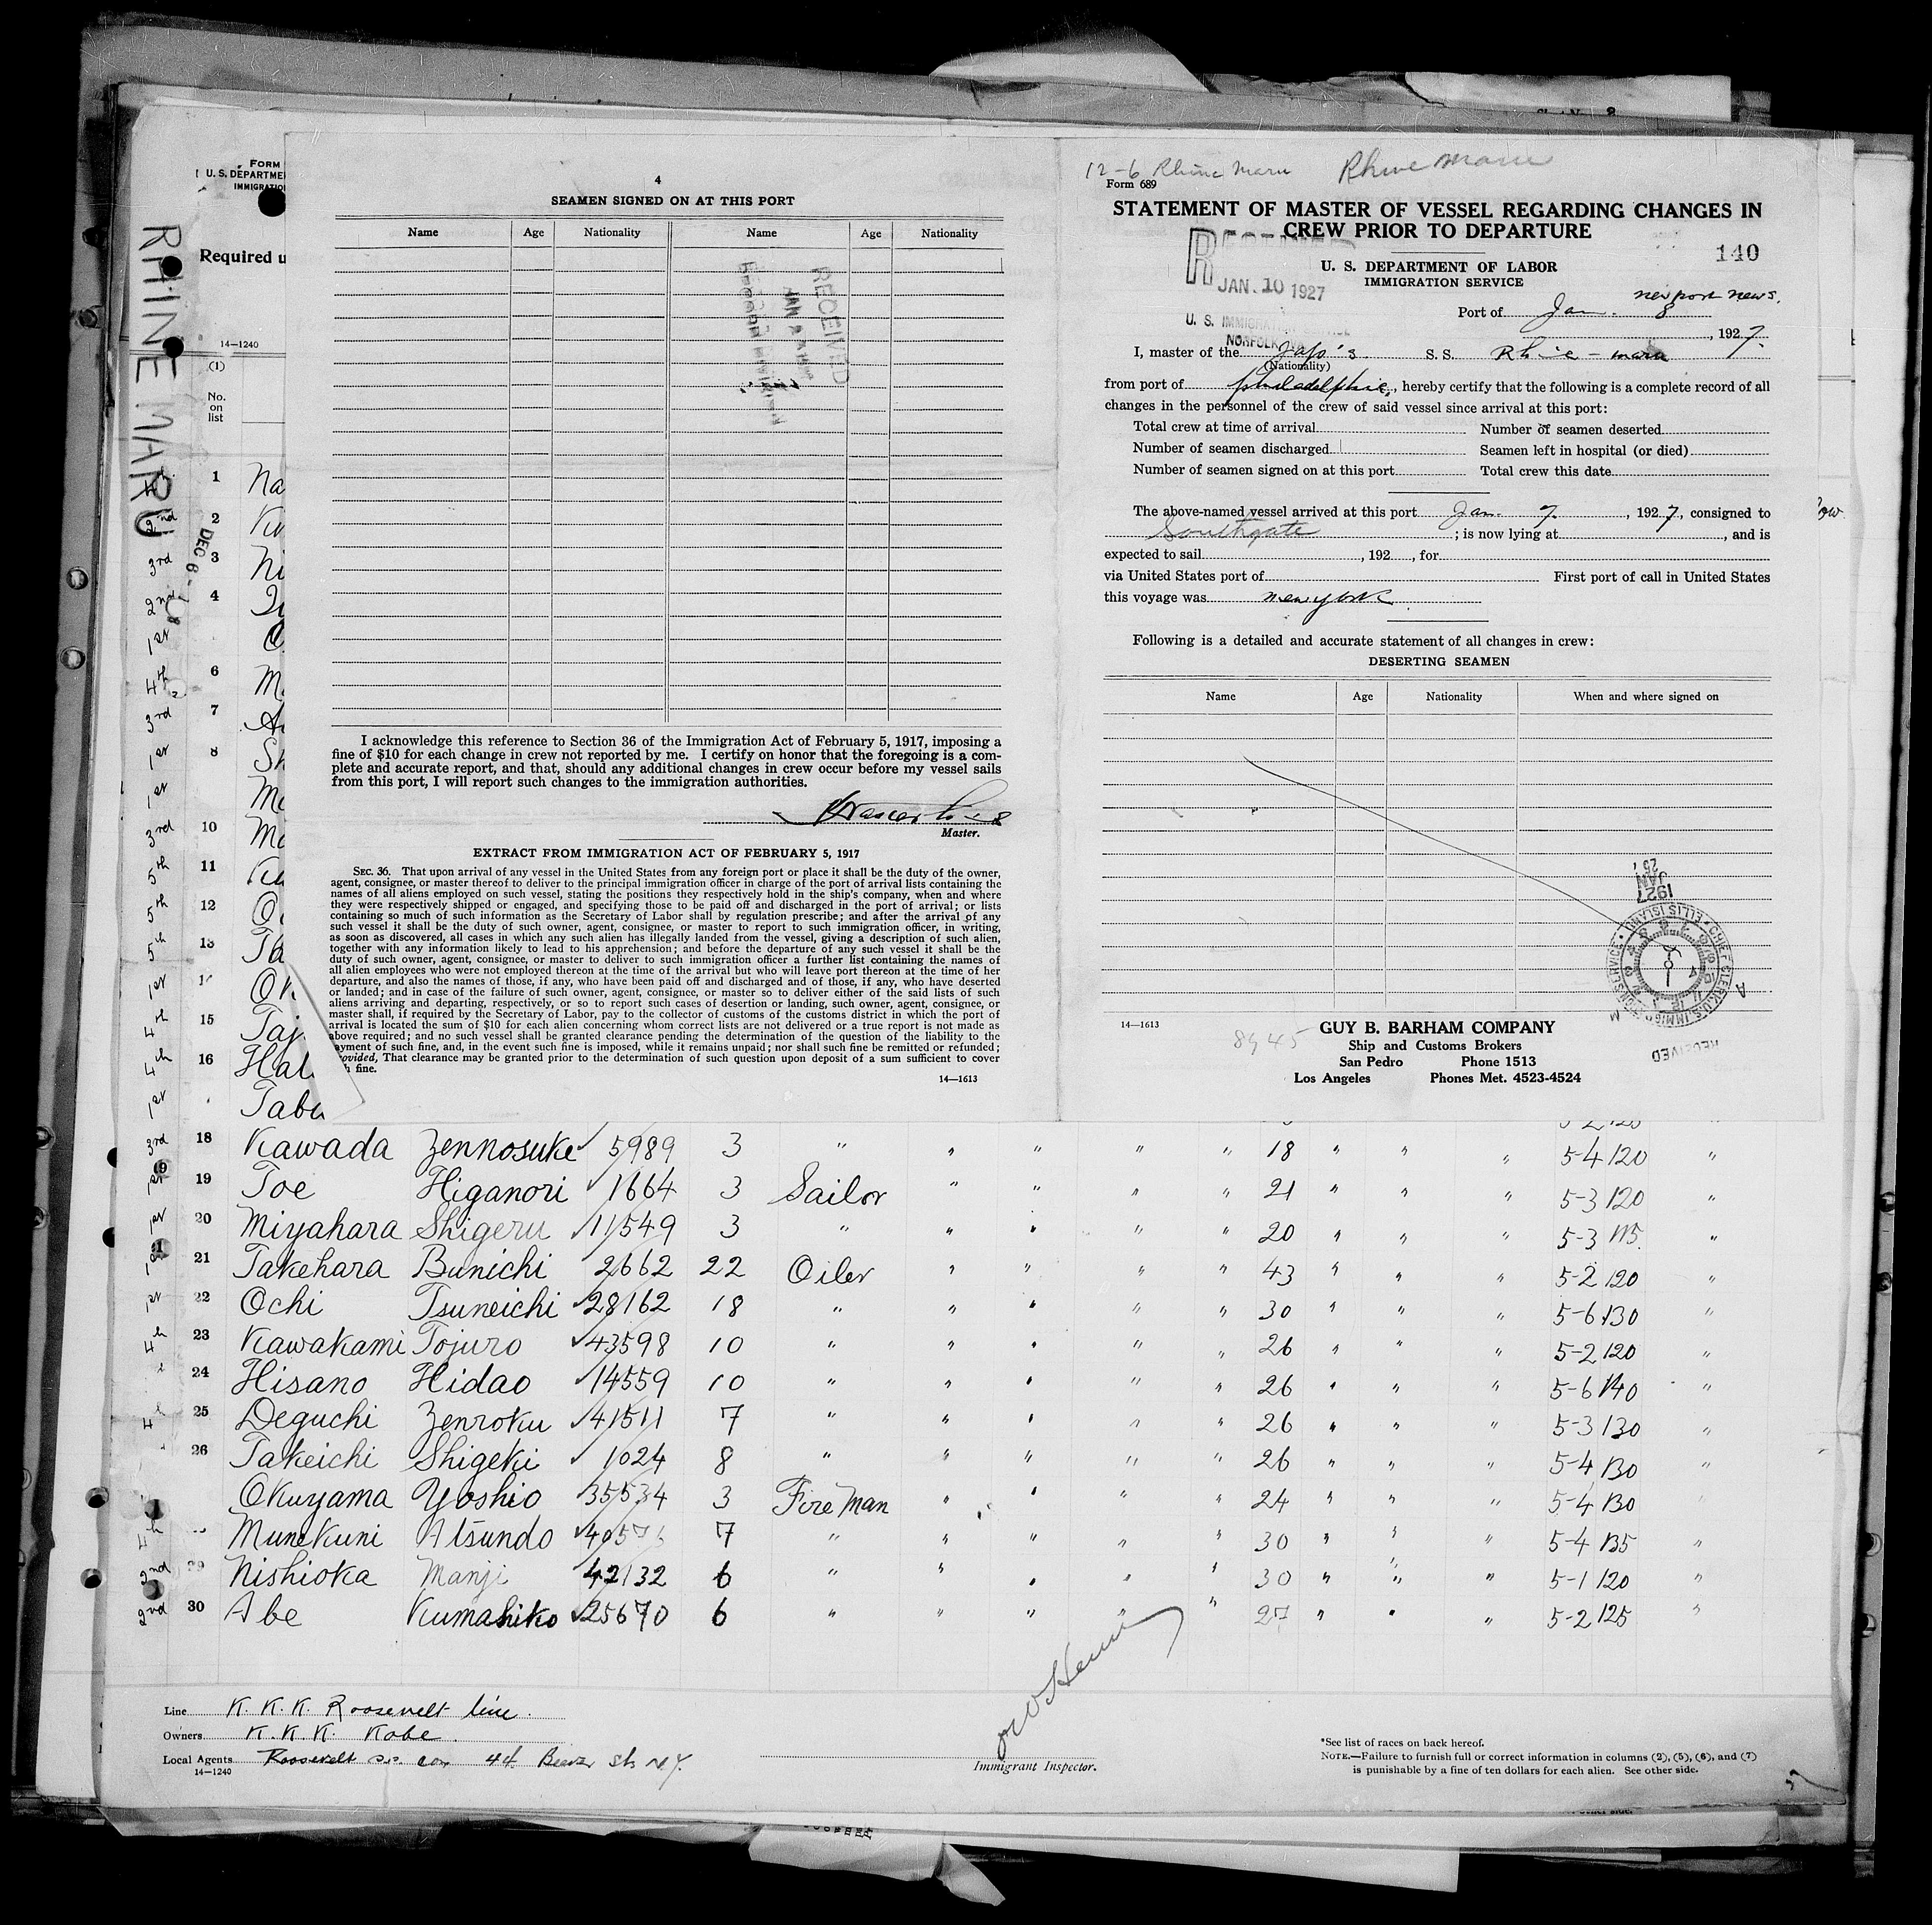 FORM
U. S. DEPARTME
IMMIGRATIO
RHINE MARU
Required u
14—1240
(1)
No.
on
list
DEC 6
1 Na
2nd 2 Ku
3rd 3 Ni
2nd 4
1st O
4th 6 M
3rd 7
1st 8 Sh
1st Mo
3rd 10 Mo
5th 11 Ku
5th 12 O
5th 13 Ta
1st 1 Ok
4th 15 Taj
4th 16 Hat
1st Tabu
4
SEAMEN SIGNED ON AT THIS PORT
Name Age Nationality Name Age Nationality
RECEIVED
JAN
I acknowledge this reference to Section 36 of the Immigration Act of February 5, 1917, imposing a
fine of $10 for each change in crew not reported by me. I certify on honor that the foregoing is a com-
plete and accurate report, and that, should any additional changes in crew occur before my vessel sails
from this port, I will report such changes to the immigration authorities.
Master.
EXTRACT FROM IMMIGRATION ACT OF FEBRUARY 5, 1917
SEC. 36. That upon arrival of any vessel in the United States from any foreign port or place it shall be the duty of the owner,
agent, consignee, or master thereof to deliver to the principal immigration officer in charge of the port of arrival lists containing the
names of all aliens employed on such vessel, stating the positions they respectively hold in the ship's company, when and where
they were respectively shipped or engaged, and specifying those to be paid off and discharged in the port of arrival; or lists
containing so much of such information as the Secretary of Labor shall by regulation prescribe; and after the arrival of any
such vessel it shall be the duty of such owner, agent, consignee, or master to report to such immigration officer, in writing,
as soon as discovered, all cases in which any such alien has illegally landed from the vessel, giving a description of such alien,
together with any information likely to lead to his apprehension; and before the departure of any such vessel it shall be the
duty of such owner, agent, consignee, or master to deliver to such immigration officer a further list containing the names of
all alien employees who were not employed thereon at the time of the arrival but who will leave port thereon at the time of her
departure, and also the names of those, if any, who have been paid off and discharged and of those, if any, who have deserted
or landed; and in case of the failure of such owner, agent, consignee, or master so to deliver either of the said lists of such
aliens arriving and departing, respectively, or so to report such cases of desertion or landing, such owner, agent, consignee, or
master shall, if required by the Secretary of Labor, pay to the collector of customs of the customs district in which the port of
arrival is located the sum of $10 for each alien concerning whom correct lists are not delivered or a true report is not made as
above required; and no such vessel shall be granted clearance pending the determination of the question of the liability to the
ayment of such fine, and, in the event such fine is imposed, while it remains unpaid; nor shall such fine be remitted or refunded;
ovided, That clearance may be granted prior to the determination of such question upon deposit of a sum sufficient to cover
h fine.
14—1613
12-6 Rhine Maru Rhine Maru
Form 689
STATEMENT OF MASTER OF VESSEL REGARDING CHANGES IN
CREW PRIOR TO DEPARTURE
140
RECEIVED
JAN. 10 1927
U. S. IMMIGRATION SERVICE
NORFOLK, VA.
U. S. DEPARTMENT OF LABOR
IMMIGRATION SERVICE
newport news.
Port of Jan. 8
, 1927.
I, master of the Jap's S. S. Rhine-maru
(Nationality)
from port of philadelphia, hereby certify that the following is a complete record of all
changes in the personnel of the crew of said vessel since arrival at this port:
Total crew at time of arrival Number of seamen deserted
Number of seamen discharged Seamen left in hospital (or died)
Number of seamen signed on at this port Total crew this date
The above-named vessel arrived at this port Jan. 7, 1927, consigned to
Southgate ; is now lying at , and is
expected to sail , 192 , for
via United States port of First port of call in United States
this voyage was new york
Following is a detailed and accurate statement of all changes in crew:
DESERTING SEAMEN
Name Age Nationality When and where signed on
1927
JAN
25
CHIEF CLERK
ELLIS ISLAND
RECEIVED
14—1613
8945
GUY B. BARHAM COMPANY
Ship and Customs Brokers
San Pedro Phone 1513
Los Angeles Phones Met. 4523-4524
3rd 18 Kawada Zennosuke 5989 3 " " " " " 18 " " " 5-4 120 "
1st 19 Toe Higanori 1664 3 Sailor " " " " 21 " " " 5-3 120 "
1st 20 Miyahara Shigeru 11549 3 " " " " " 20 " " " 5-3 115 "
1st 21 Takehara Bunichi 2662 22 Oiler " " " " 43 " " " 5-2 120 "
1st 22 Ochi Tsuneichi 28162 18 " " " " " 30 " " " 5-6 130 "
4th 23 Kawakami Tojuro 43598 10 " " " " " 26 " " " 5-2 120 "
24 Hisano Hidao 14559 10 " " " " " 26 " " " 5-6 140 "
25 Deguchi Zenroku 41511 7 " " " " " 26 " " " 5-3 130 "
26 Takeichi Shigeki 1024 8 " " " " " 26 " " " 5-4 130 "
Okuyama Yoshio 35534 3 Fire Man " " " " 24 " " " 5-4 130 "
4th Munekuni Atsundo 7 " " " " " 30 " " " 5-4 135 "
2nd 29 Nishioka Manji 42132 6 " " " " " 30 " " " 5-1 120 "
2nd 30 Abe Kumahiko 25670 6 " " " " " 27 " " " 5-2 125 "
Line K. K. K. Roosevelt line.
Owners K. K. K. Kobe.
Local Agents Roosevelt s.s. con 44 Beaver St. N.Y.
14—1240
Immigrant Inspector.
*See list of races on back hereof.
NOTE.—Failure to furnish full or correct information in columns (2), (5), (6), and (7)
is punishable by a fine of ten dollars for each alien. See other side.